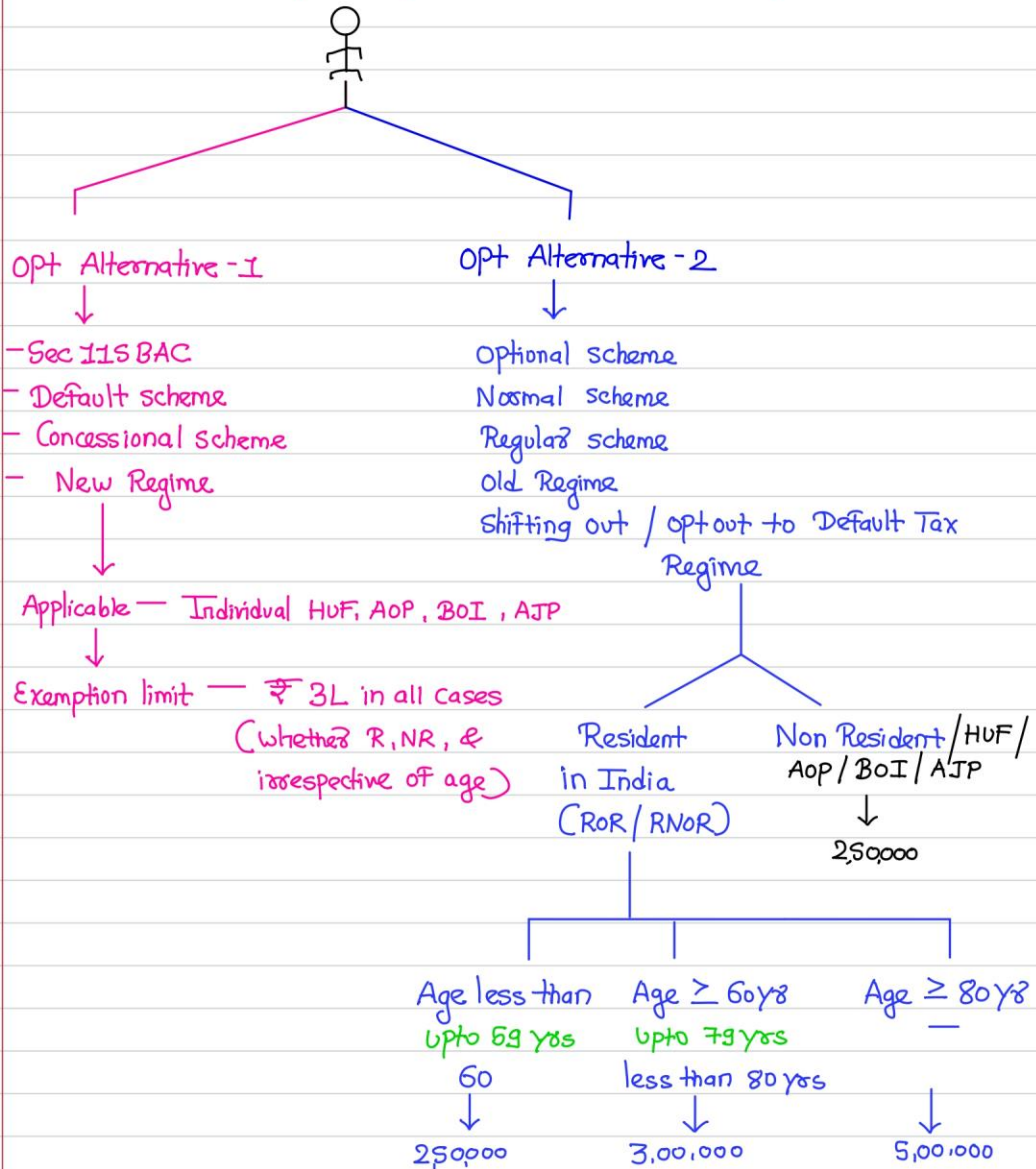 Opt Alternative - 1
- Sec 115 BAC
- Default scheme
- Concessional scheme
- New Regime
Applicable — Individual HUF, AOP, BOI, AJP
Exemption limit — ₹ 3L in all cases
(whether R, NR, &
irrespective of age)
Opt Alternative - 2
Optional scheme
Normal scheme
Regular scheme
Old Regime
Shifting out / opt out to Default Tax
Regime
Resident
in India
(ROR / RNOR)
Non Resident / HUF /
AOP / BOI / AJP
2,50,000
Age less than
upto 59 yrs
60
250,000
Age ≥ 60 yr
upto 79 yrs
less than 80 yrs
3,00,000
Age ≥ 80 yr
5,00,000